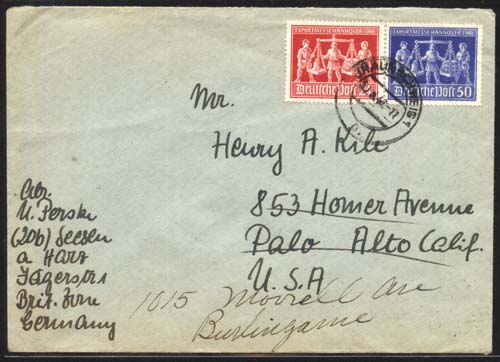 EXPORTMESSE HANNOVER 1948
Deutsche Post
EXPORTMESSE HANNOVER 1948
Deutsche Post 50
BRAUNSCHWEIG 1
Mr.
Henry A. Kile
853 Homer Avenue
Palo Alto Calif.
U.S.A
1015 Morrell Ave
Burlingame
(20b) Seesen
a Harz
Jägerstr 1
Brit. Zone
Germany